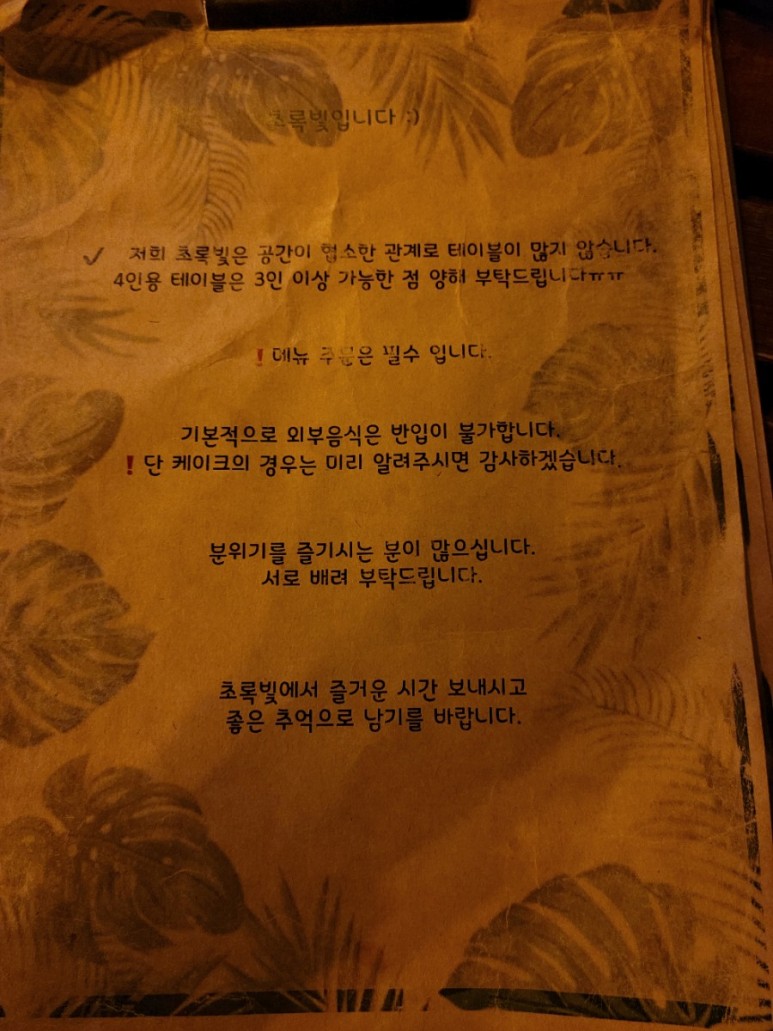 초록빛입니다 :)
✓ 저희 초록빛은 공간이 협소한 관계로 테이블이 많지 않습니다.
4인용 테이블은 3인 이상 가능한 점 양해 부탁드립니다ㅠㅠ
❗메뉴 주문은 필수 입니다.
기본적으로 외부음식은 반입이 불가합니다.
❗단 케이크의 경우는 미리 알려주시면 감사하겠습니다.
분위기를 즐기시는 분이 많으십니다.
서로 배려 부탁드립니다.
초록빛에서 즐거운 시간 보내시고
좋은 추억으로 남기를 바랍니다.